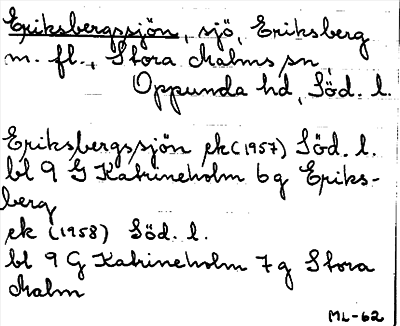 Eriksbergssjön, sjö, Eriksberg
m. fl., Stora Malms sn,
Oppunda hd, Söd. l.
Eriksbergssjön ek (1957) Söd. l.
bl 9 G Katrineholm 6g Eriks-
berg
ek (1958) Söd. l.
bl 9 G Katrineholm 7g Stora
Malm
ML-62